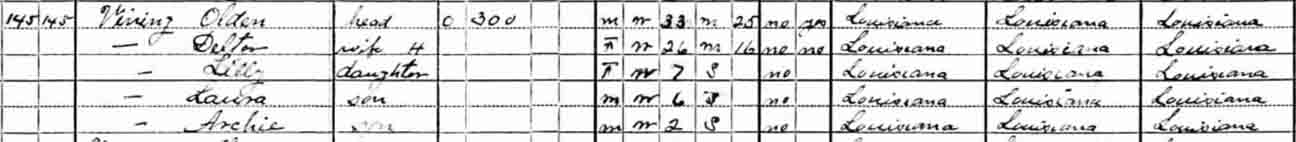 145 145 Vining Olden head O 300 m W 33 m 25 no yes Louisiana Louisiana Louisiana
— Delton wife H F W 26 m 16 no no Louisiana Louisiana Louisiana
— Lilly daughter F W 7 S no Louisiana Louisiana Louisiana
— Laura son m W 6 S no Louisiana Louisiana Louisiana
— Archie son m W 2 S no Louisiana Louisiana Louisiana